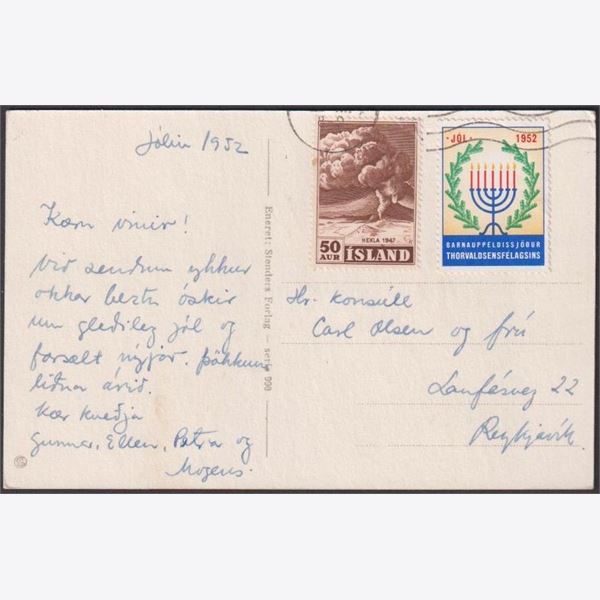 Jólin 1952
Kæru vinir!
Við sendum ykkur
okkar beztu óskir
um gleðileg jól og
farsælt nýjár. Þökkum
liðna árið.
Kær kveðja
Gunnar, Ellen, Petra og
Mogens.
Eneret: Stenders Forlag — serie 990
HEKLA 1947
50 AUR ÍSLAND
·JÓL· 1952
BARNAUPPELDISSJÓÐUR
THORVALDSENSFÉLAGSINS
Hr. konsúll
Carl Olsen og frú
Laufásveg 22
Reykjavík.